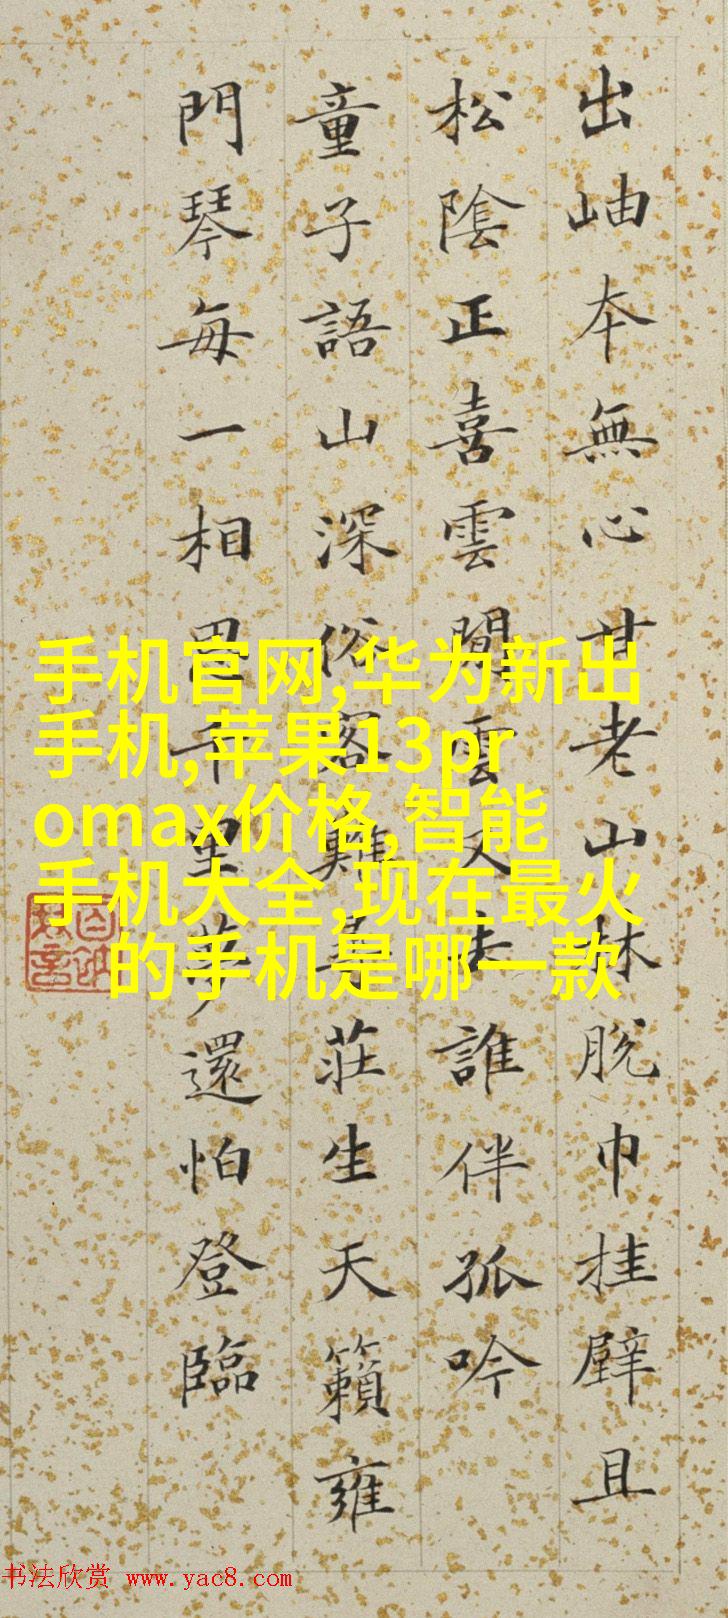 出岫本無心甘老山林脫巾挂壁且
松陰正喜雲閒雲又去誰伴孤吟
童子語山深俗客難尋莊生天籟雍
門琴每一相思千里夢還怕登臨
手机官网,华为新出
手机,苹果13pr
omax价格,智能
手机大全,现在最火
的手机是哪一款
书法欣赏 www.yac8.com